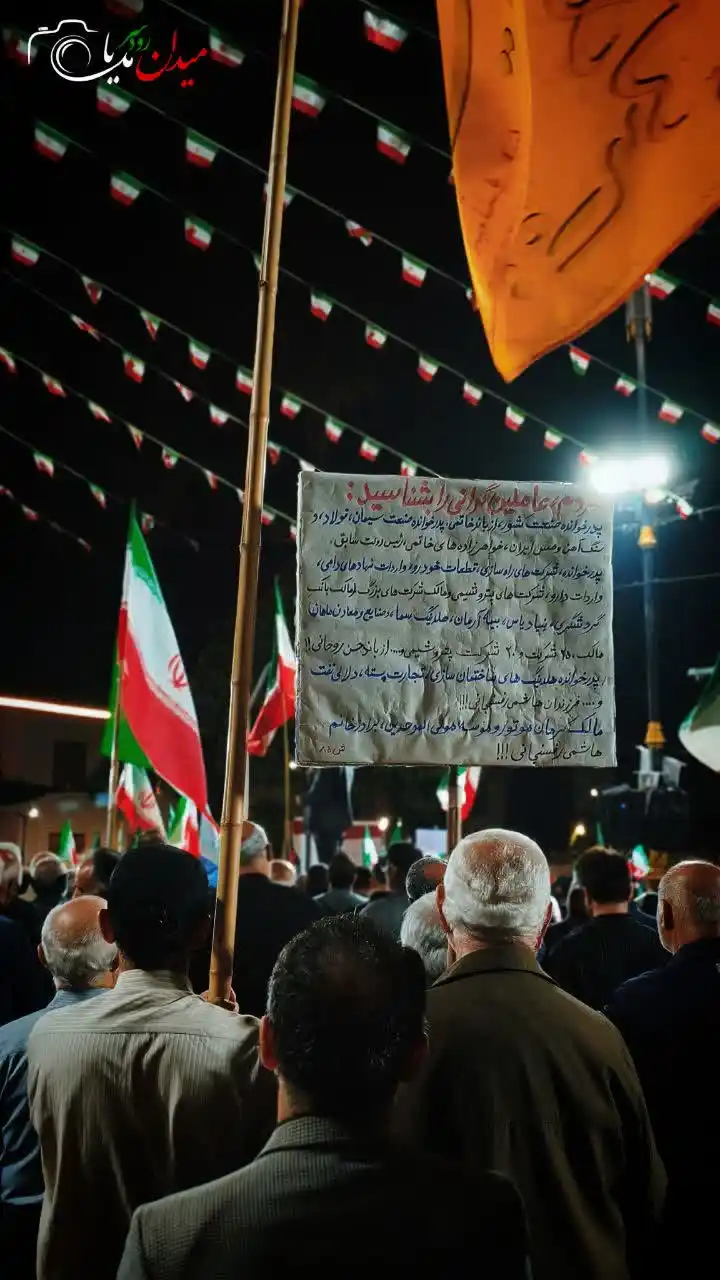 میدان رودسر مدیا
مردم، عاملین گرانی را بشناسید:
پدرخوانده صنعت شور، از باند خاتمی، پدرخوانده صنعت سیمان، فولاد، و
سنگ آهن و مس ایران، خواهرزاده های خاتمی، رئیس دولت سابق،
پدرخوانده، شرکت های راه سازی، قطعات خودرو، واردات نهادهای دامی،
واردات دارو، شرکت های پتروشیمی ومالک شرکت های بزرگ (مالک بانک
گردشگری، بنیاد یاس، بیمه آرمان، هلدینگ سما، صنایع و معادن ماهان)
مالک ۲۵۰ شرکت و ۲۰ شرکت پتروشیمی و... از باند حسن روحانی!!
پدرخوانده هلدینگ های ساختمان سازی، تجارت پسته، دلالی نفت
و .... فرزندان هاشمی رفسنجانی!!!
مالک کرمان موتور و موسسه مولی الموحدین، برادر خانم
هاشمی رفسنجانی!!!